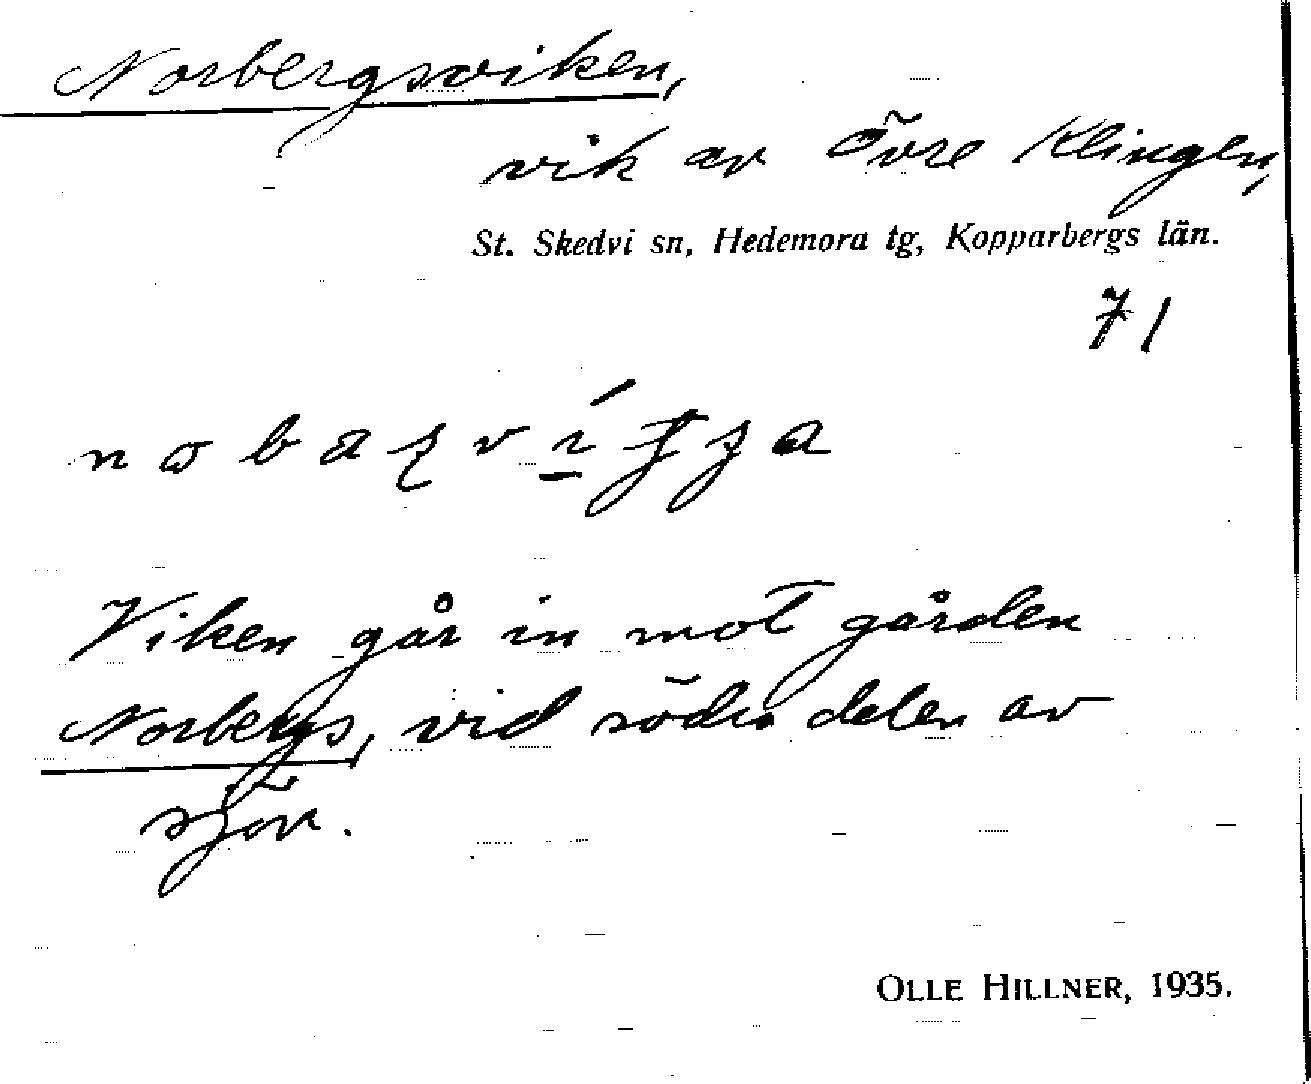 Norbergsviken,
vik av Övre Klingen,
St. Skedvi sn, Hedemora tg, Kopparbergs län.
71
Viken går in mot gården
Norbergs, vid södra delen av
sjön.
OLLE HILLNER, 1935.